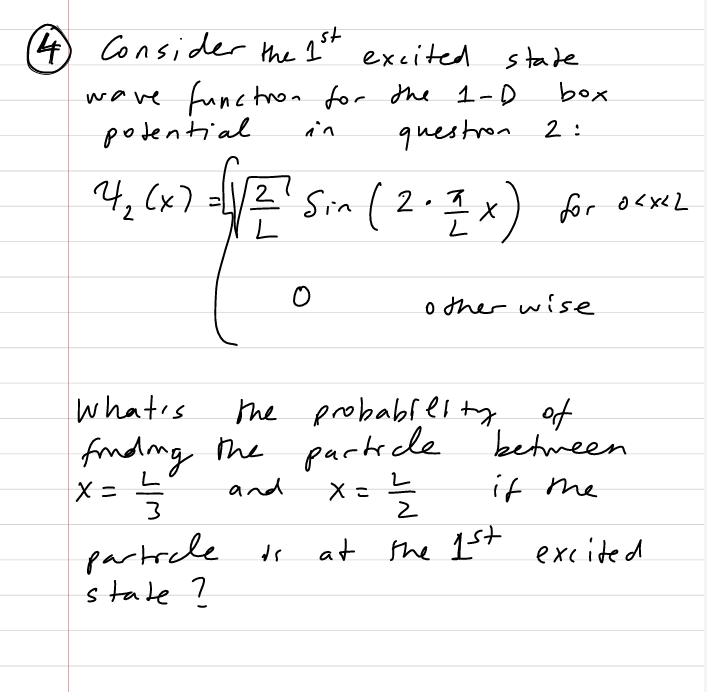 ④ Consider the 1st excited state
wave function for the 1-D box
potential in question 2 :
Ψ₂(x) = { √(2/L) Sin ( 2 · π/L x ) for 0<x<L
0 otherwise
What is the probability of
finding the particle between
x = L/3 and x = L/2 if the
particle is at the 1st excited
state ?